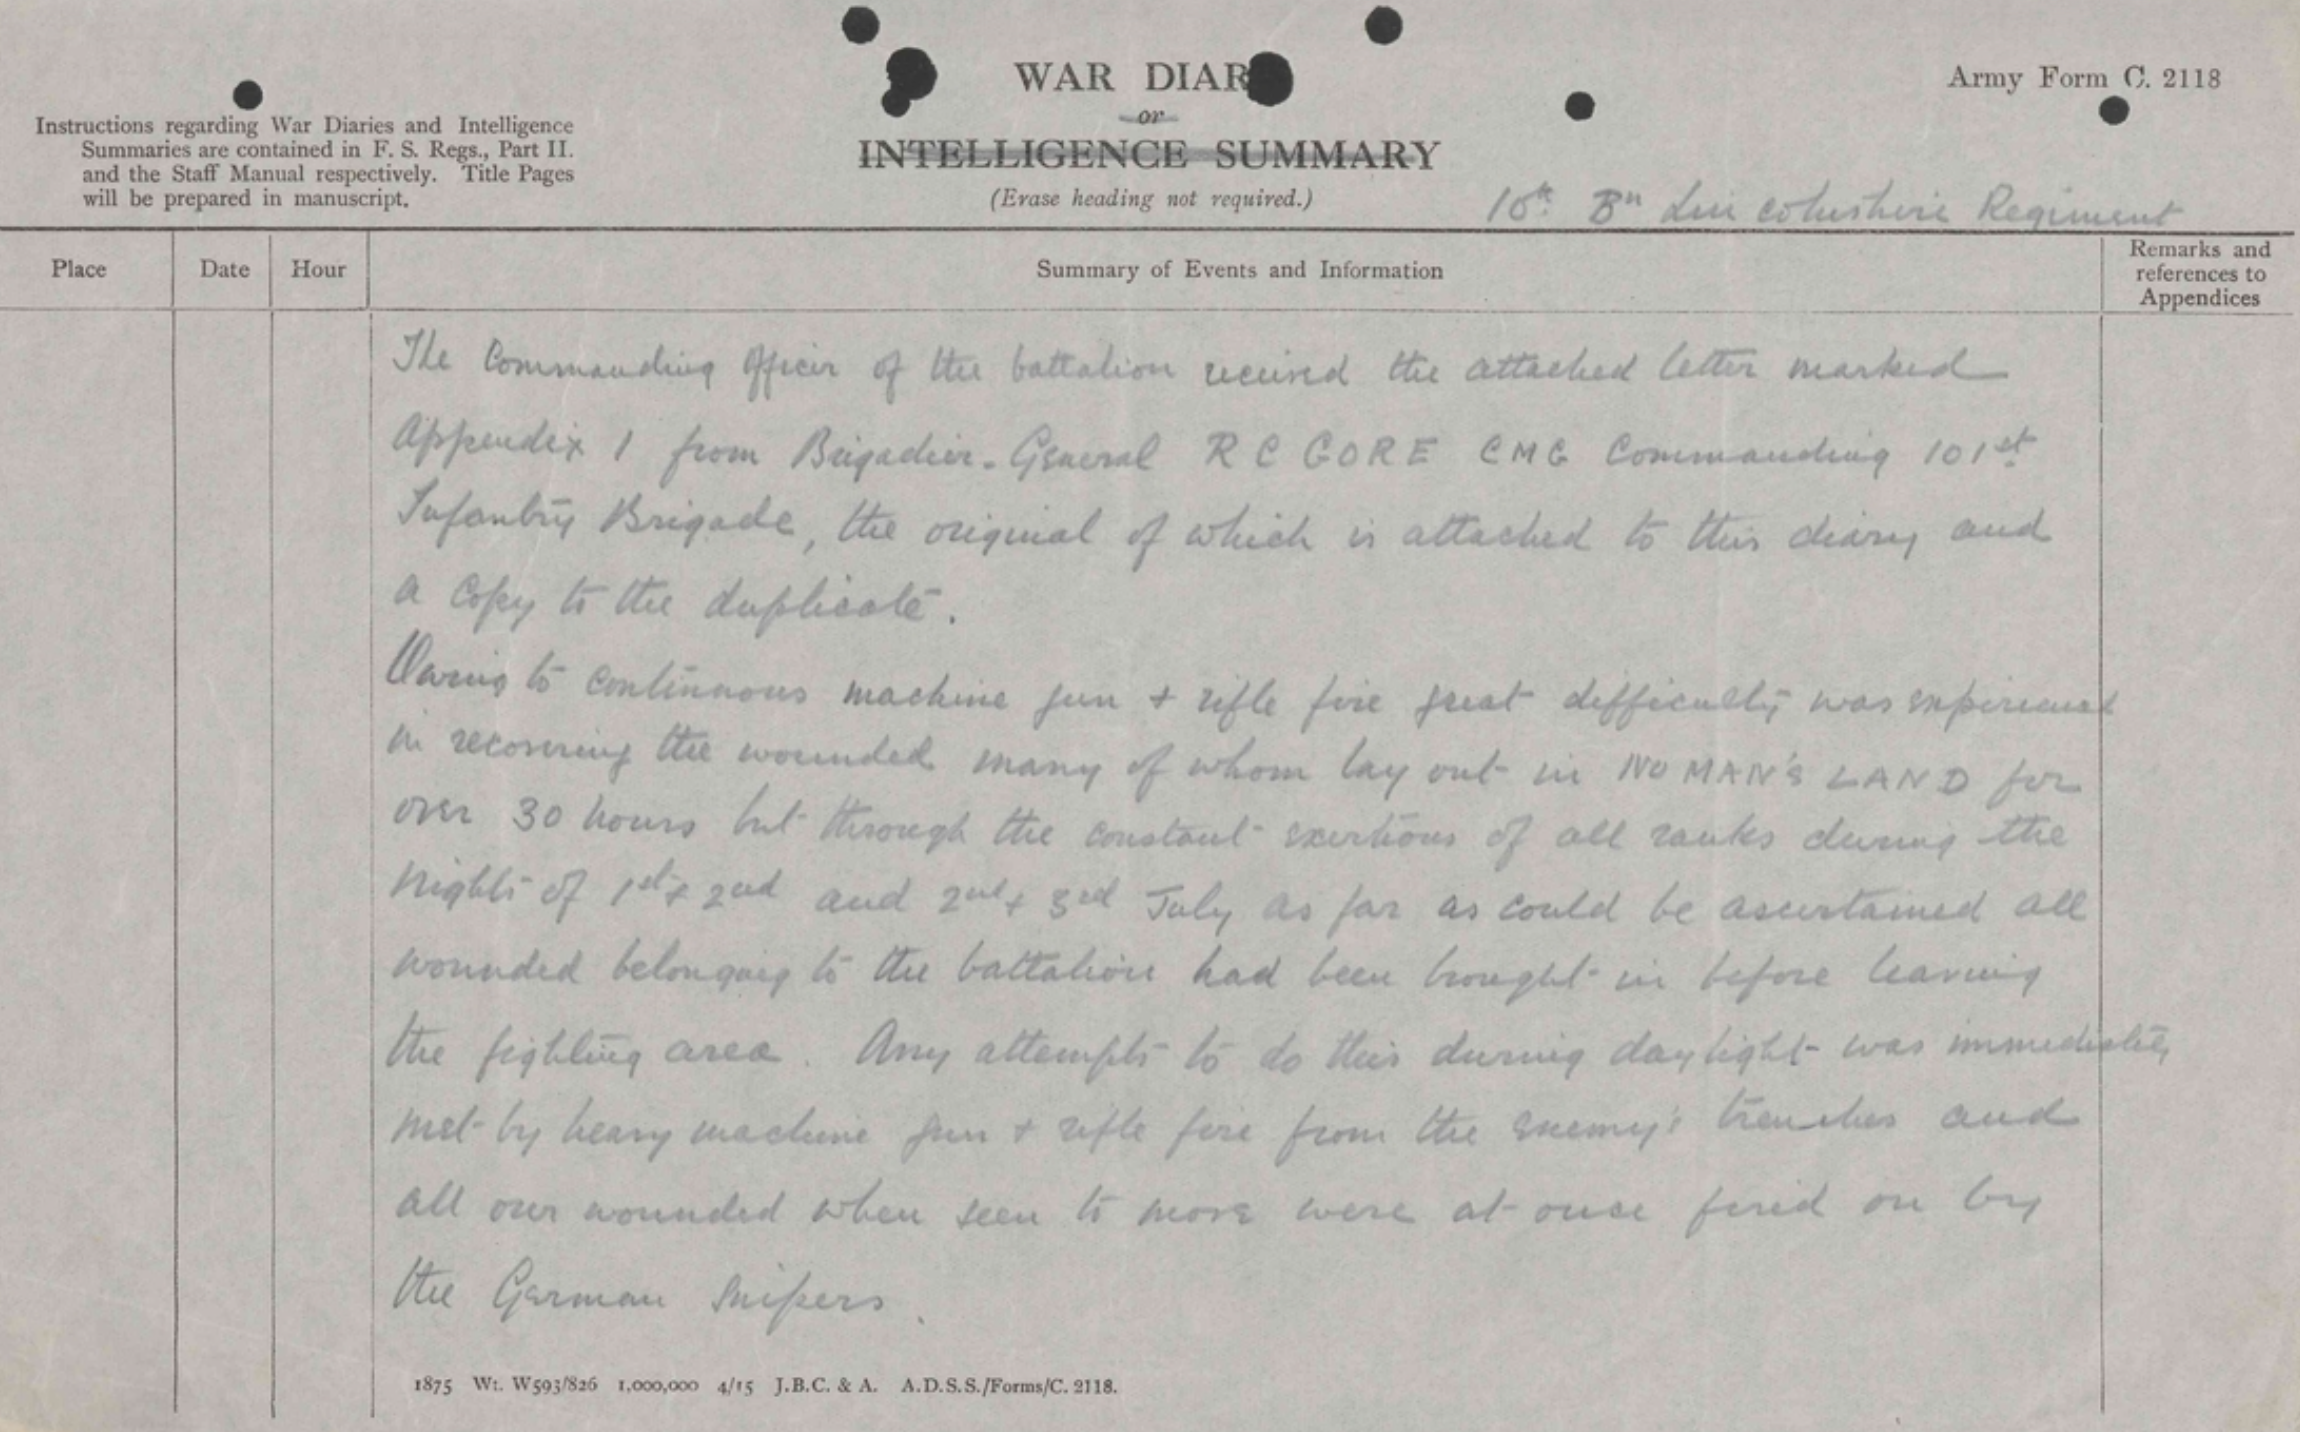 WAR DIAR
or
INTELLIGENCE SUMMARY
(Erase heading not required.)
Army Form C. 2118
Instructions regarding War Diaries and Intelligence
Summaries are contained in F. S. Regs., Part II.
and the Staff Manual respectively. Title Pages
will be prepared in manuscript.
10th Bn Lincolnshire Regiment
Place
Date
Hour
Summary of Events and Information
Remarks and
references to
Appendices
The Commanding Officer of the battalion received the attached letter marked
Appendix 1 from Brigadier-General R C GORE CMG Commanding 101st
Infantry Brigade, the original of which is attached to this diary and
a copy to the duplicate.
Owing to continuous machine gun + rifle fire great difficulty was experienced
in recovering the wounded many of whom lay out in NO MAN'S LAND for
over 30 hours but through the constant exertions of all ranks during the
nights of 1st + 2nd and 2nd + 3rd July as far as could be ascertained all
wounded belonging to the battalion had been brought in before leaving
the fighting area. Any attempts to do this during daylight was immediately
met by heavy machine gun + rifle fire from the enemy's trenches and
all our wounded when seen to move were at once fired on by
the German Snipers.
1875 Wt. W593/826 1,000,000 4/15 J.B.C. & A. A.D.S.S./Forms/C. 2118.